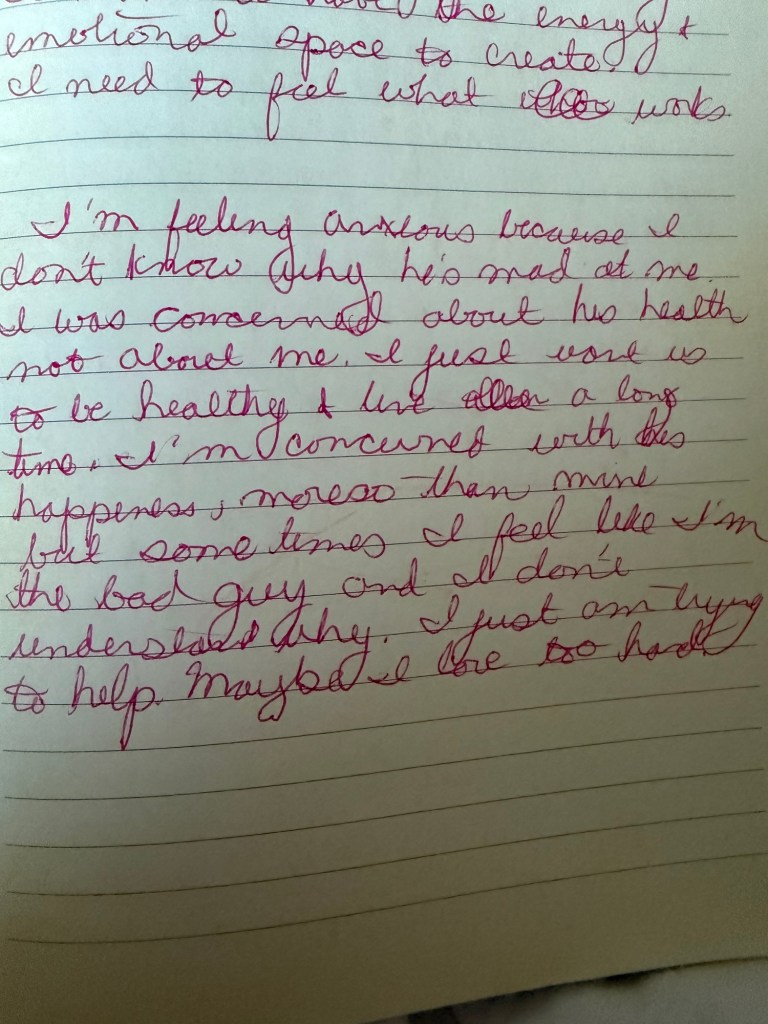 the energy &
emotional space to create.
I need to feel what works.
I'm feeling anxious because I
don't know why he's mad at me.
I was concerned about his health
not about me. I just want us
to be healthy & live a long
time. I'm concerned with his
happeness, moreso than mine
but some times I feel like I'm
the bad guy and I don't
understand why. I just am trying
to help. Maybe I love too hard.